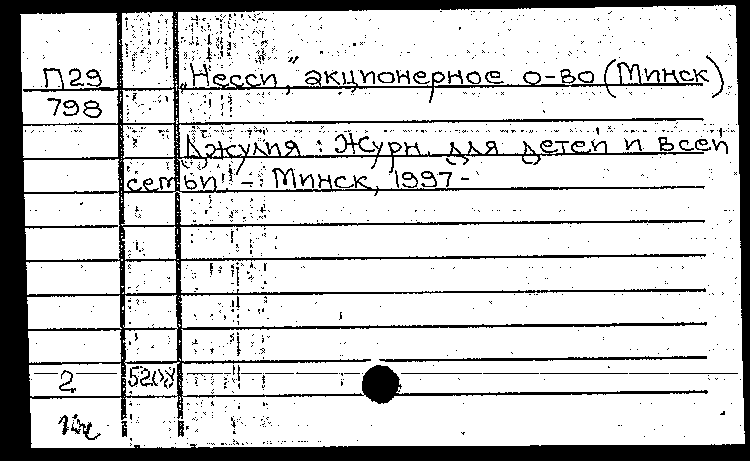 П29 „Несси," акционерное о-во (Минск)
798
Джулия : Журн. для детей и всей
семьи. - Минск, 1997-
2 5208